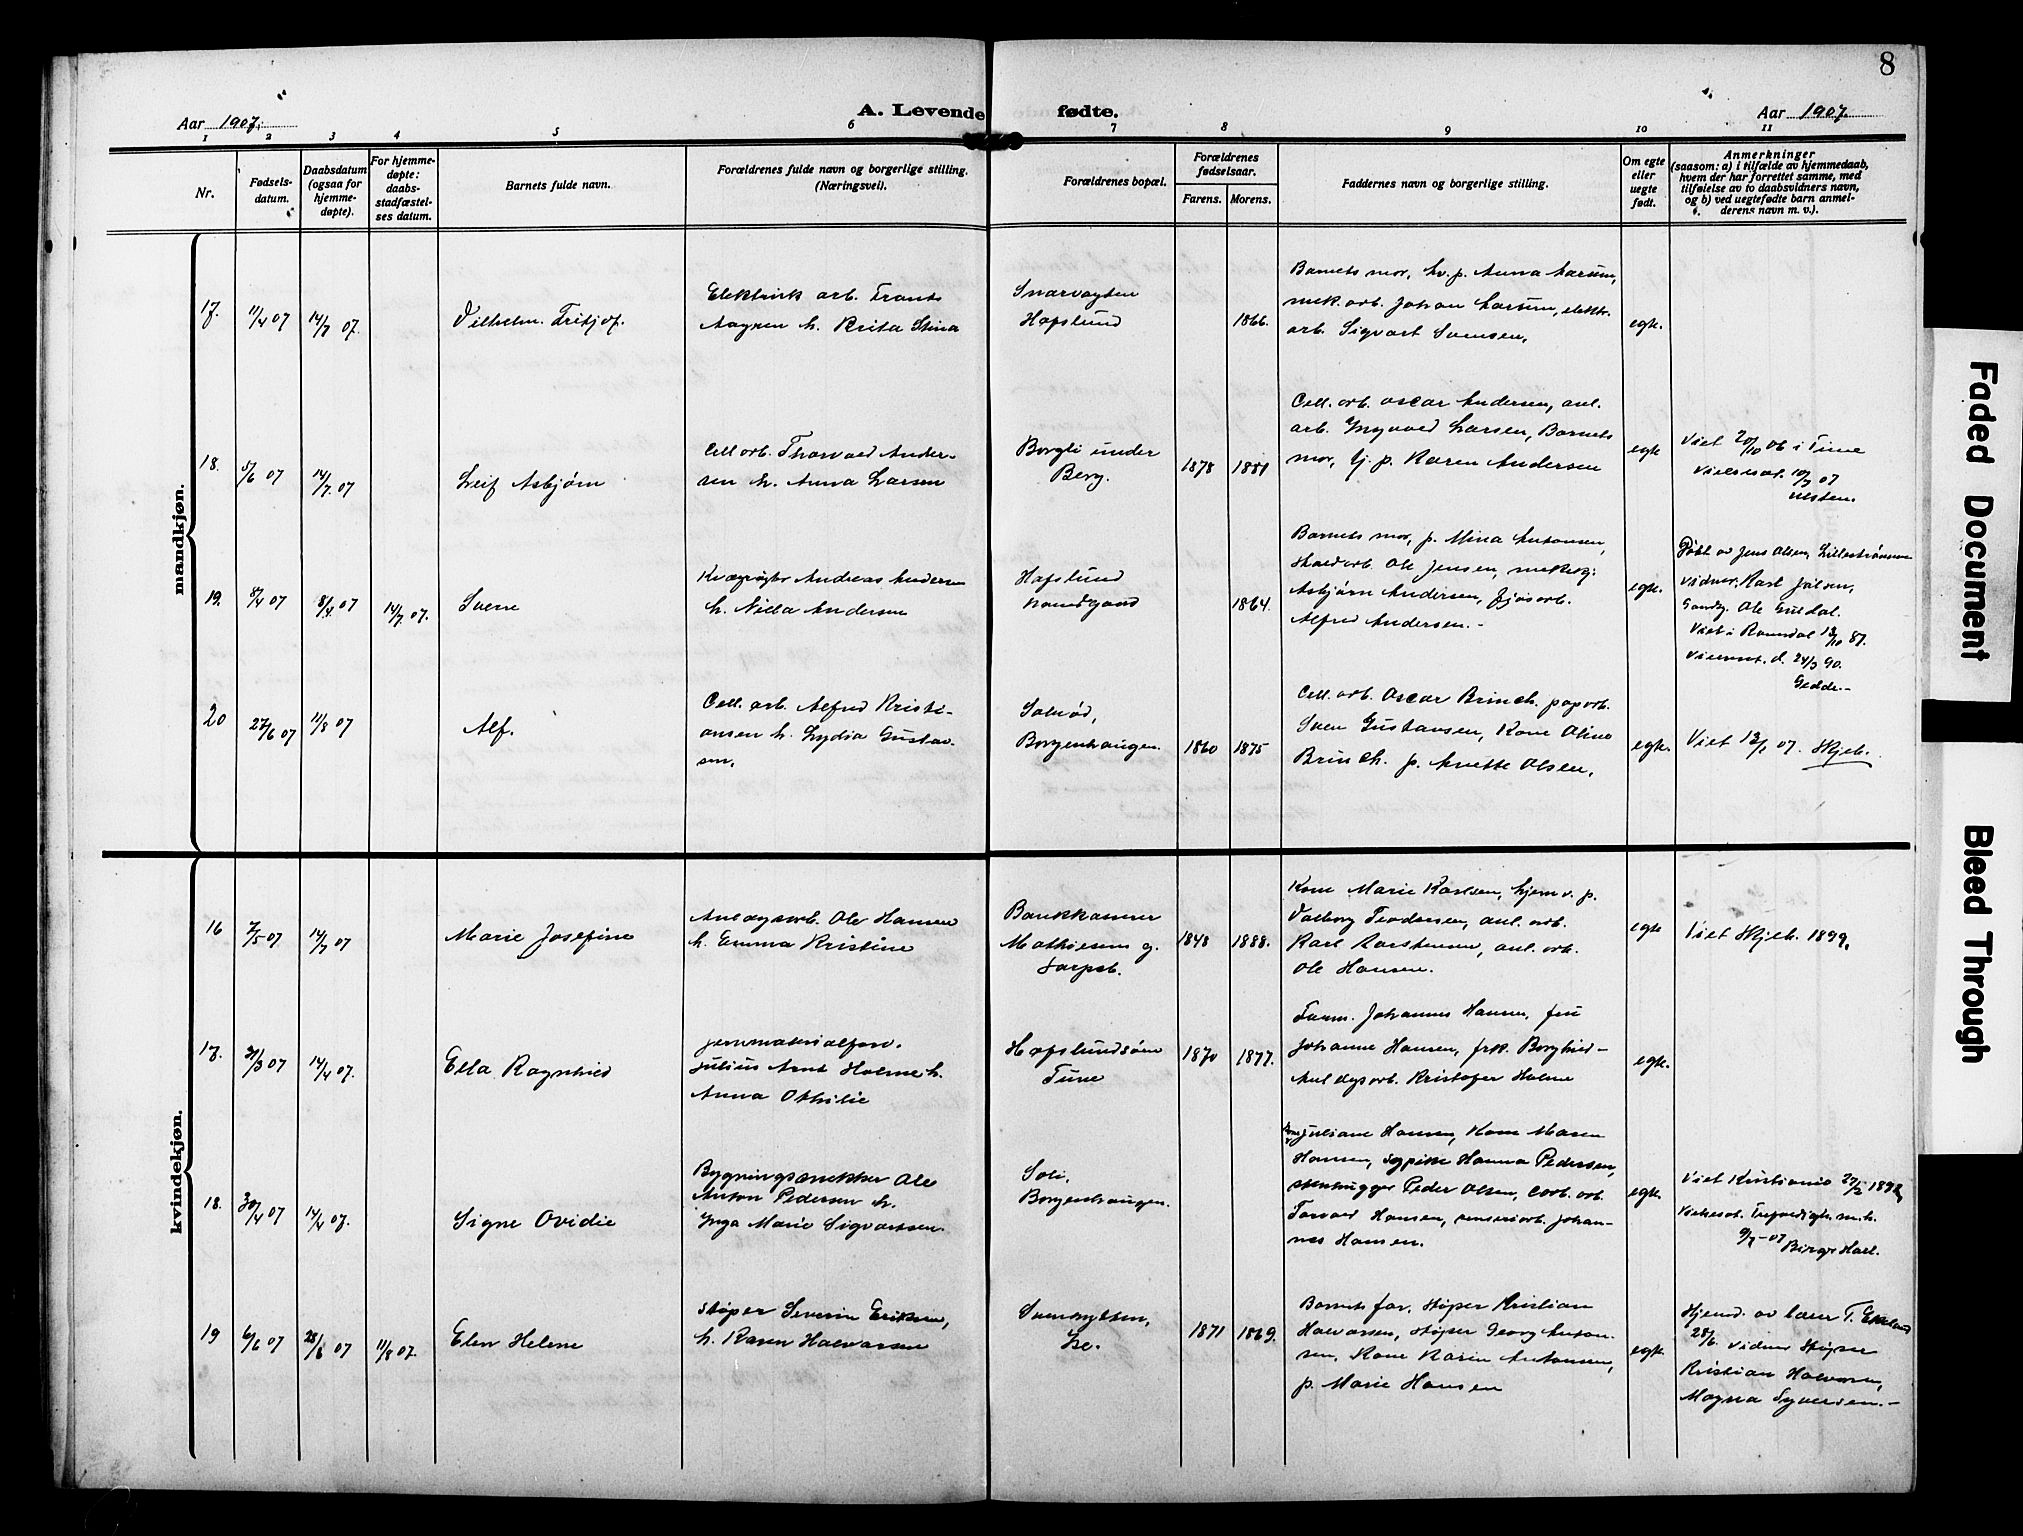 8
A. Levende fødte.
Aar 1907.
Aar 1907.
1 2 3 4 5 6 7 8 9 10 11
Nr.
Fødsels-
datum.
Daabsdatum
(ogsaa for
hjemme-
døpte).
For hjemme-
døpte:
daabs-
stadfæstel-
ses datum.
Barnets fulde navn.
Forældrenes fulde navn og borgerlige stilling.
(Næringsvei).
Forældrenes bopæl.
Forældrenes
fødselsaar.
Farens.
Morens.
Faddernes navn og borgerlige stilling.
Om egte
eller
uegte
født.
Anmerkninger
(saasom: a) i tilfælde av hjemmedaab,
hvem der har forrettet samme, med
tilføielse av to daabsvidners navn,
og b) ved uegtefødte barn anmel-
derens navn m. v.).
mandkjøn.
17.
11/4 07
14/7 07.
Vilhelm Fritjof.
Elektrisk arb. Frants
h. Brita Stina
Hafslund
1866.
Barnets mor, hv. p. Anna
mek. arb. Johan elektr.
arb. Sigvart
egte.
18.
5/6 07
14/7 07
Leif Asbjørn
Cell. arb. Thorvald Ander-
sen h. Anna Larsen
Borgli under
Berg.
1878
1881
Cell. arb. Oscar Andersen, anl.
arb. Ingvald Larsen, Barnets
mor, p. Karen Andersen
egte
Viet 20/10 06 i Tune
Vielsesat. 10/7 07
19.
8/4 07
8/4 07
14/7 07.
Svene
Kvægrøgter Andreas Andersen
h. Andersen
Hafslund
hovedgaard
1864.
Barnets mor, p. Mina Antonsen,
arb. Ole Jensen,
Asbjørn Andersen, fjøsarb.
Alfred Andersen.-
egte.
Døbt av Jens Olsen, Lillestrømmen
vidner. Karl
Ole
Viet i 13/10 87.
d. 24/3 90.
20
27/6 07
11/8 07
Alf.
Cell. arb. Alfred Kristi-
ansen h. Lydia Gustav-
sen.
Borgenhaugen.
1860
1875
Cell. arb. Oscar Brinch. pap. arb.
Sven Gustavsen, Kone Oline
Brinch. p. Anette Olsen.
egte.
Viet 13/1 07. Skjeb.
kvindekjøn.
16
7/5 07
14/7 07
Marie Josefine
Anlægsarb. Ole Hansen
h. Emma Kristine
Mathiesens g.
Sarpsb.
1848
1888.
Kone Marie Karlsen, hjemv. p.
Valborg Teodorsen, anl. arb.
Karl Karstensen, anl. arb.
Ole Hansen.
egte
Viet Skjeb. 1899.
17.
31/3 07
14/4 07.
Ella Ragnhild
Jernmaterialforv.
Julius Arnt Holme h.
Anna Othilie
Hafslundsøen
Tune
1870
1877.
Johannes Hansen, fru
Johanne Hansen, frk. Borghild-
Anlægsarb. Kristofer Holme
egte.
18.
30/4 07
14/4 07.
Signe Ovidie
Bygningssnekker Ole
Anton Pedersen h.
Inga Marie Sigvartsen.
Soli,
Borgenhaugen.
Kone Juliane Hansen, Kone Maren
Hansen, sypike Hanna Pedersen,
stenhugger Peder Olsen, carb. arb.
Torvald Hansen, renseriarb. Johan-
nes Hansen.
egte.
Viet Kristiania
Vielsesat. Trefoldigh. m.h.
9/7-07 Birger Hall.
19
6/6 07
28/6 07
11/8 07.
Elen Helene
Støper Severin Eriksen,
h. Karen Halvorsen
1871
1869.
Barnets far, Støper Kristian
Halvorsen, støper Georg Anton-
sen, Kone Karin Antonsen,
p. Marie Hansen
egte.
Hjemd. av lærer T.
28/6. vidner Støper
Kristian Halvorsen,
Magna Syversen.-
Faded Document
Bleed Through